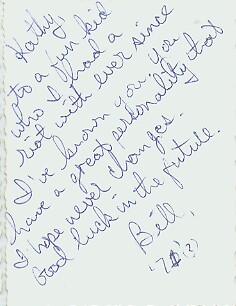 Kathy,
to a fun kid
who I had a
riot with ever since
I've known you. you
have a great personality that
I hope never changes.
Good luck in the future.
Bill,
(?)